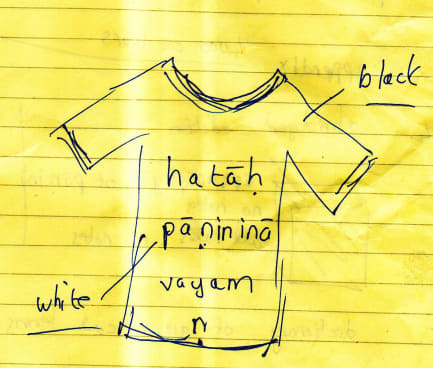 black
hatāḥ
pāṇininā
vayam
white